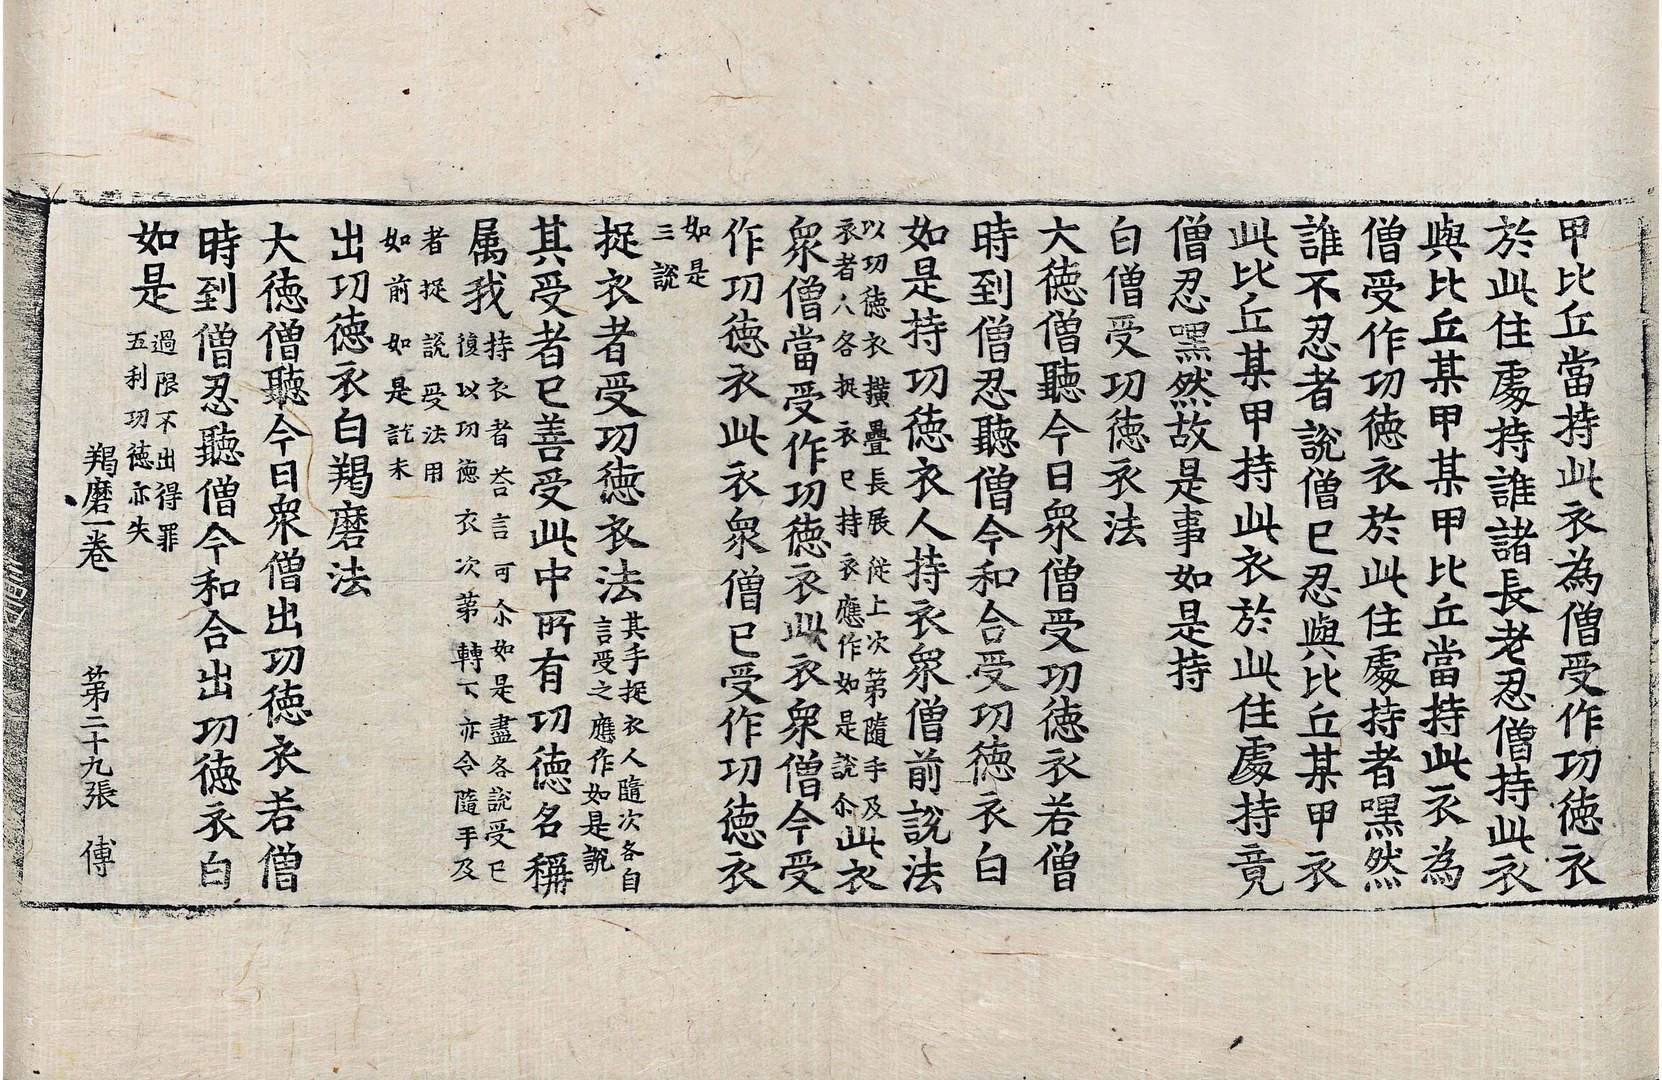 甲比丘當持此衣為僧受作功德衣
於此住處持誰諸長老忍僧持此衣
與比丘某甲某甲比丘當持此衣為
僧受作功德衣於此住處持者嘿然
誰不忍者說僧已忍與比丘某甲衣
此比丘某甲持此衣於此住處持竟
僧忍嘿然故是事如是持
白僧受功德衣法
大德僧聽今日衆僧受功德衣若僧
時到僧忍聽僧今和合受功德衣白
如是持功德衣人持衣衆僧前說法
以功德衣撗疊長展従上次第隨手及
衣者人各捉衣已持衣應作如是說尒
此衣
衆僧當受作功德衣此衣衆僧今受
作功德衣此衣衆僧已受作功德衣
如是
三說
捉衣者受功德衣法
其手捉衣人隨次各自
言受之應作如是說
其受者已善受此中所有功德名稱
属我
持衣者荅言可尒如是盡各說受已
復以功德衣次第轉下亦令隨手及
者捉說受法用
如前如是訖未
出功德衣白羯磨法
大德僧聽今日衆僧出功德衣若僧
時到僧忍聽僧今和合出功德衣白
如是
過限不出得罪
五利功德亦失
羯磨一卷 第二十九張 傅